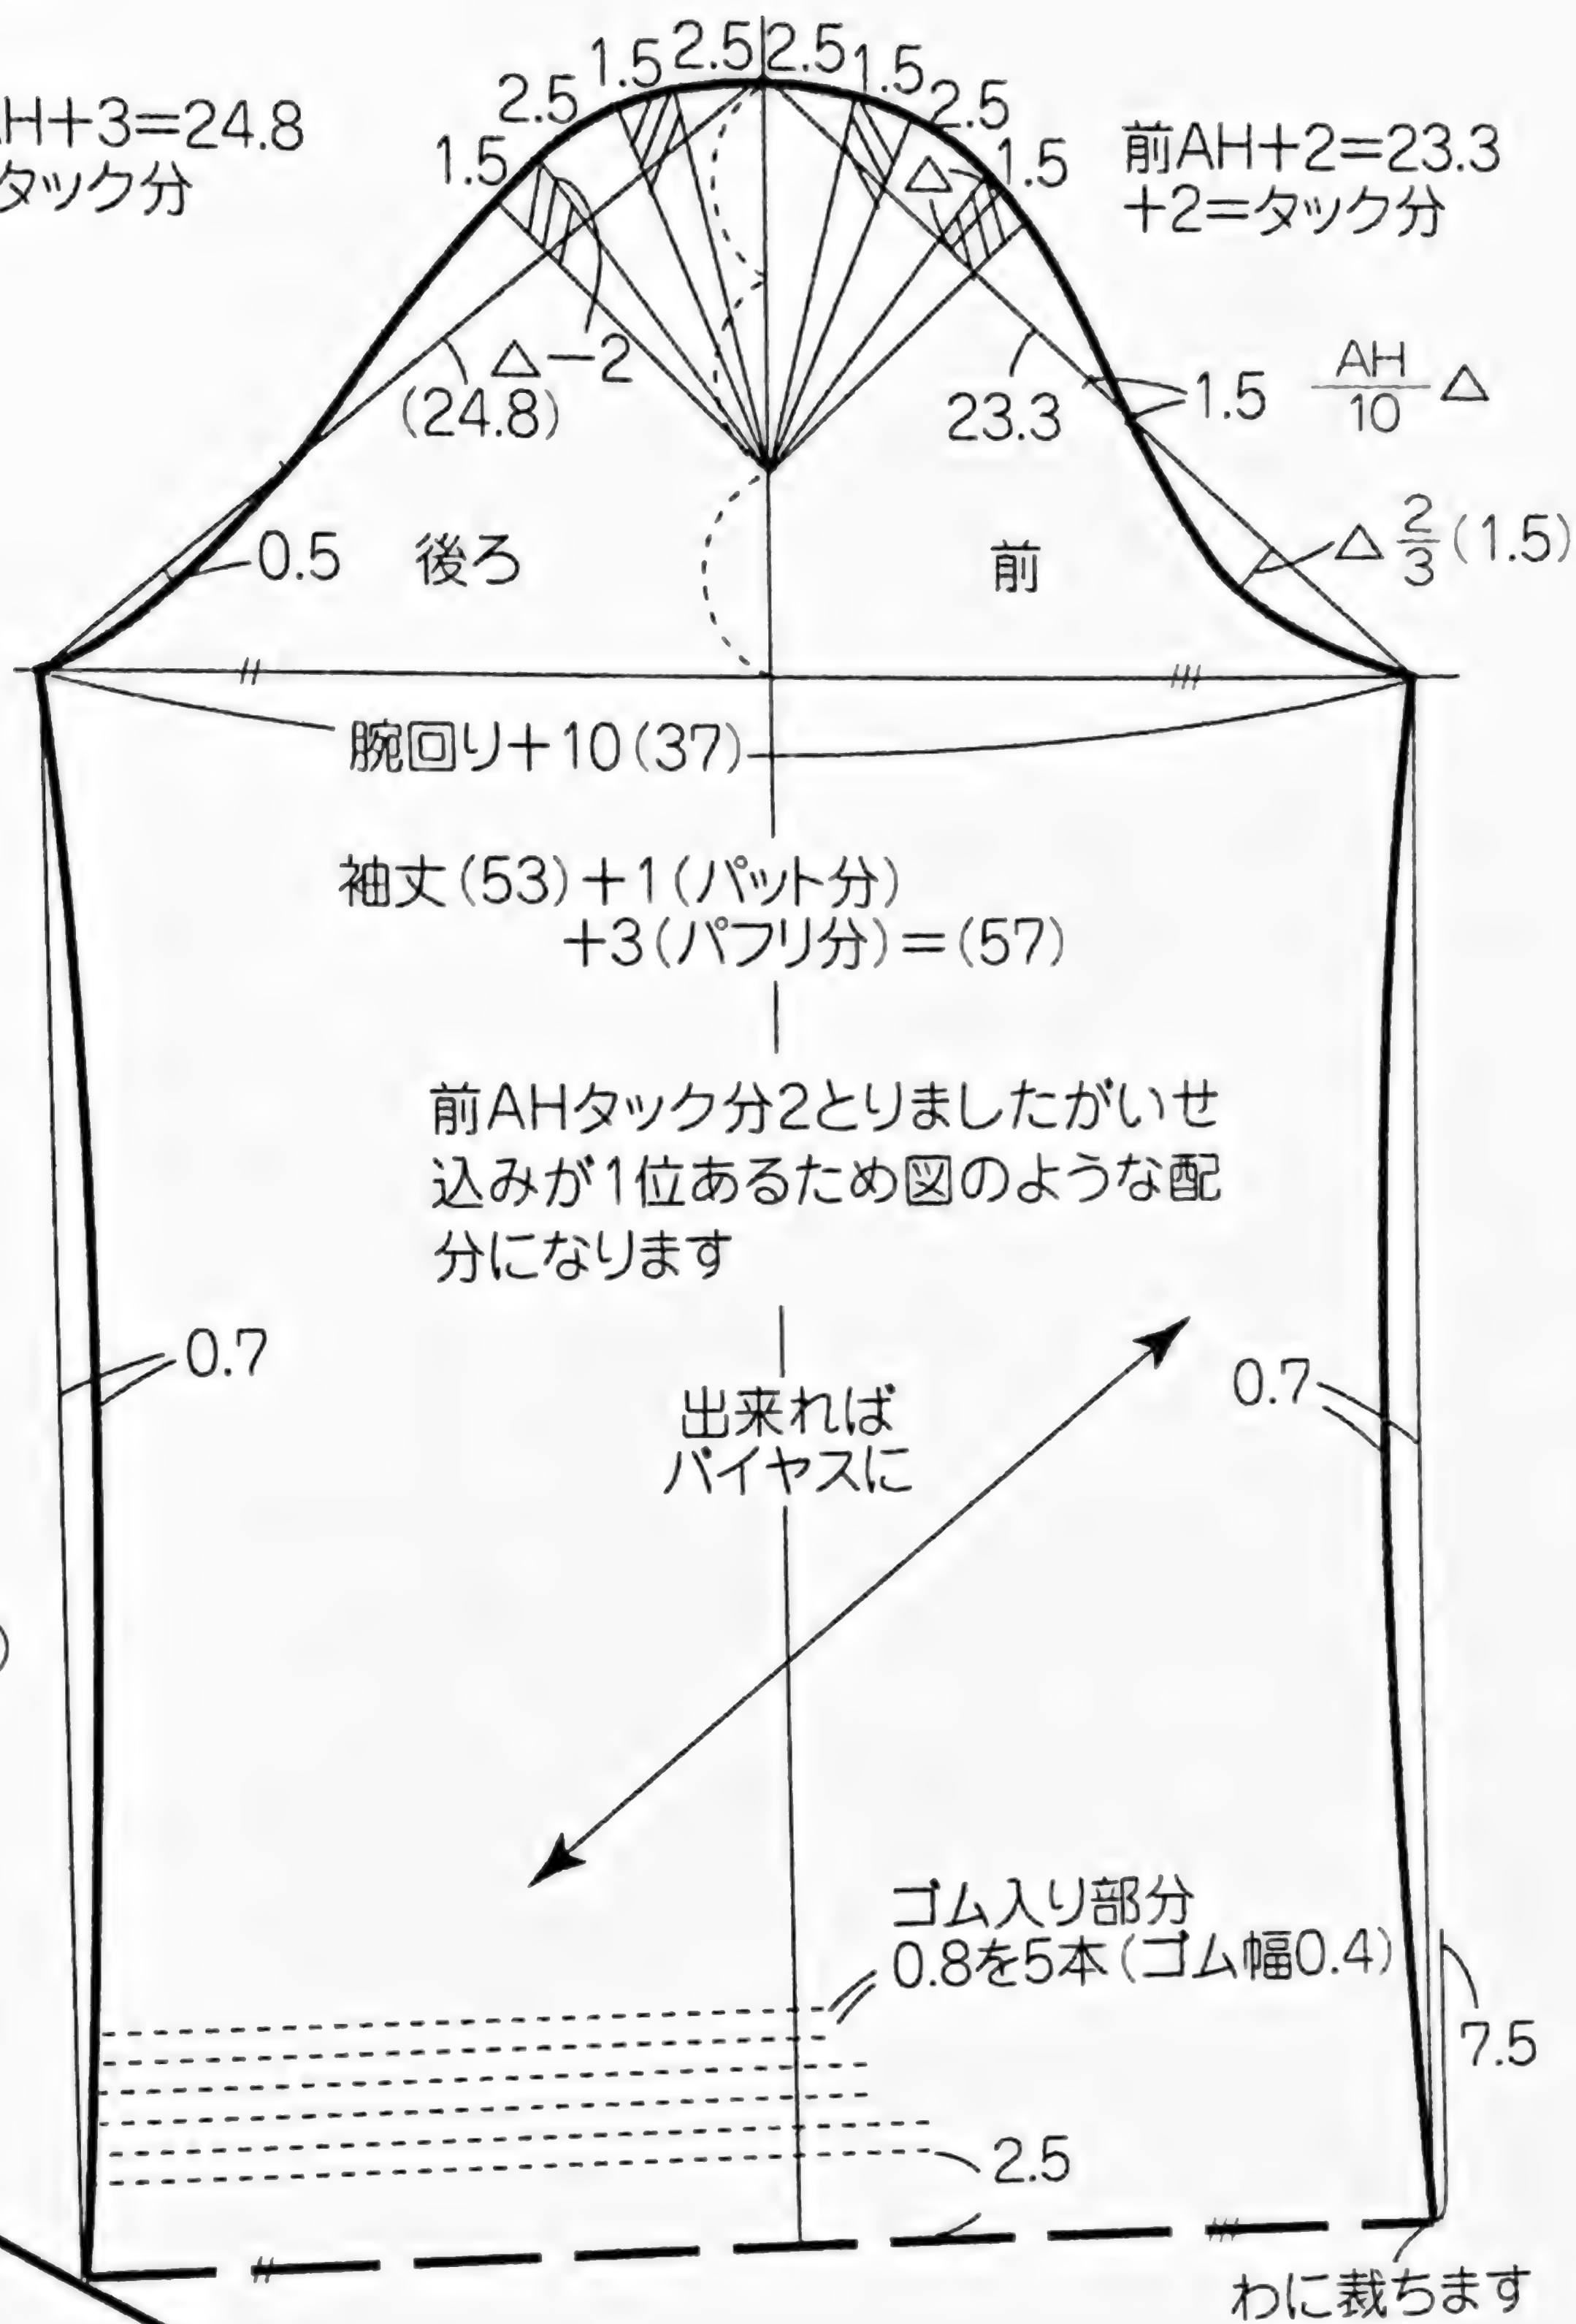 2.5 2.5
1.5 1.5
2.5 2.5
1.5 1.5
H+3=24.8
タック分
前AH+2=23.3
+2=タック分
△
△-2
(24.8)
23.3
1.5
AH/10 △
0.5
後ろ
前
△2/3(1.5)
腕回り+10(37)
袖丈(53)+1(パット分)
+3(パフリ分)=(57)
前AHタック分2とりましたがいせ
込みが1位あるため図のような配
分になります
0.7
0.7
出来れば
バイヤスに
ゴム入り部分
0.8を5本(ゴム幅0.4)
7.5
2.5
わに裁ちます